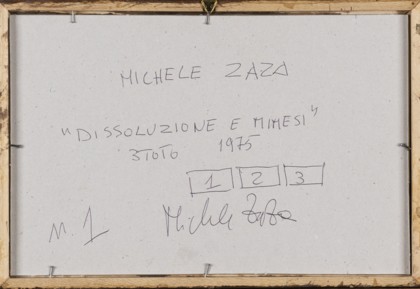 MICHELE ZAZA
"DISSOLUZIONE E MIMESI"
3 FOTO 1975
1 2 3
N. 1 Michele Zaza